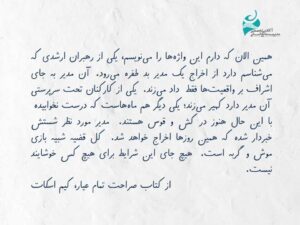 همین الان که دارم این واژه‌ها را می‌نویسم، یکی از رهبران ارشدی که
می‌شناسم دارد از اخراج یک مدیر بد طفره می‌رود. آن مدیر به جای
اشراف بر واقعیت‌ها فقط داد می‌زند. یکی از کارکنان تحت سرپرستی
آن مدیر دارد کهیر می‌زند؛ یکی دیگر هم ماه‌هاست که درست نخوابیده
با این حال هنوز در کش و قوس هستند. مدیر مورد نظر شستش
خبردار شده که همین روزها اخراج خواهد شد. کل قضیه شبیه بازی
موش و گربه است. هیچ جای این شرایط برای هیچ کس خوشایند
نیست.
از کتاب صراحت تمام عیار، کیم اسکات